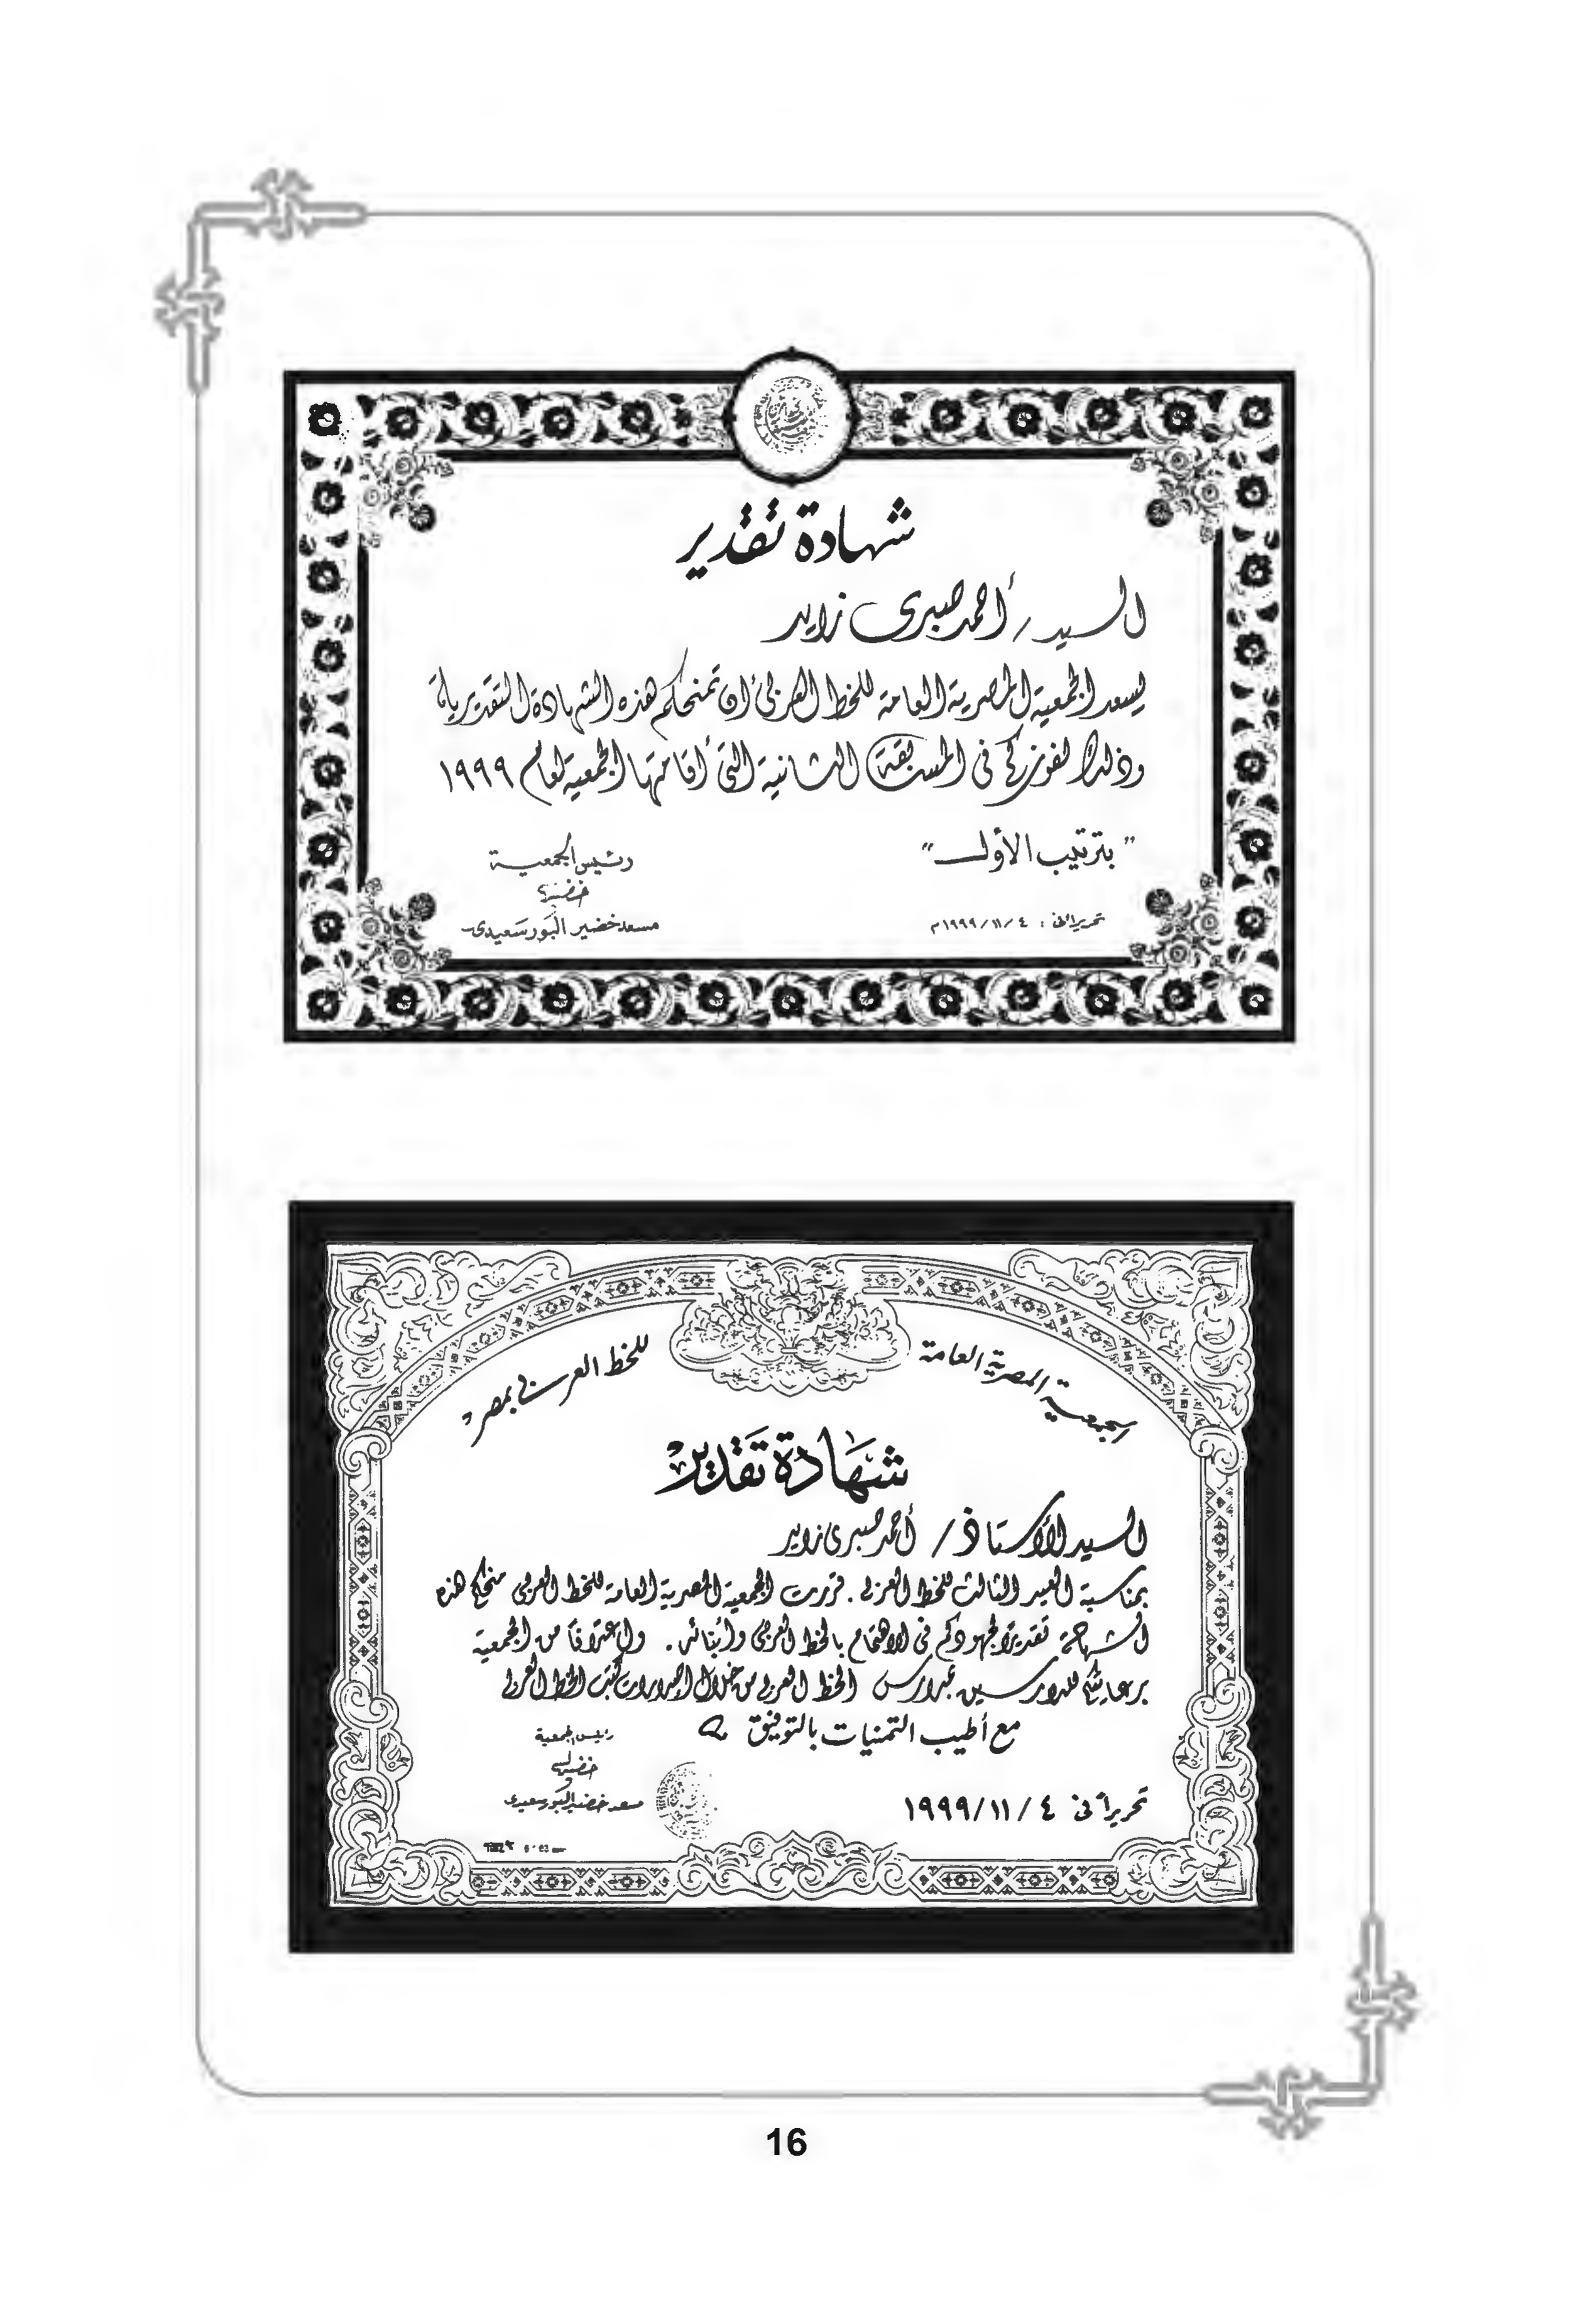 شهادة تقدير
السيد / أحمد صبرى زايد
يسعد الجمعية المصرية العامة للخط العربى أن تمنحكم هذه الشهادة التقديرية
وذلك لفوزكم فى المسابقة الثانية التى أقامتها الجمعية لعام ١٩٩٩
" بترتيب الأول "
رئيس الجمعية
خضير
تحريرا فى : ٤ / ١١ / ١٩٩٩م
مسعد خضير البورسعيدى
الجمعية المصرية العامة للخط العربى بمصر
شهادة تقدير
السيد الأستاذ / أحمد صبرى زايد
بمناسبة العيد الثالث للخط العربى . قررت الجمعية المصرية العامة للخط العربى منحكم هذه
الشهادة تقديرًا لجهودكم فى الاهتمام بالخط العربى وأبنائه . واعترافًا من الجمعية
برعايتكم للدارسين بمدارس الخط العربى من خلال إصدارات كتب الخط العربى
مع أطيب التمنيات بالتوفيق
رئيس الجمعية
خضير
مسعد خضير البورسعيدى
تحريرًا فى ٤ / ١١ / ١٩٩٩
16